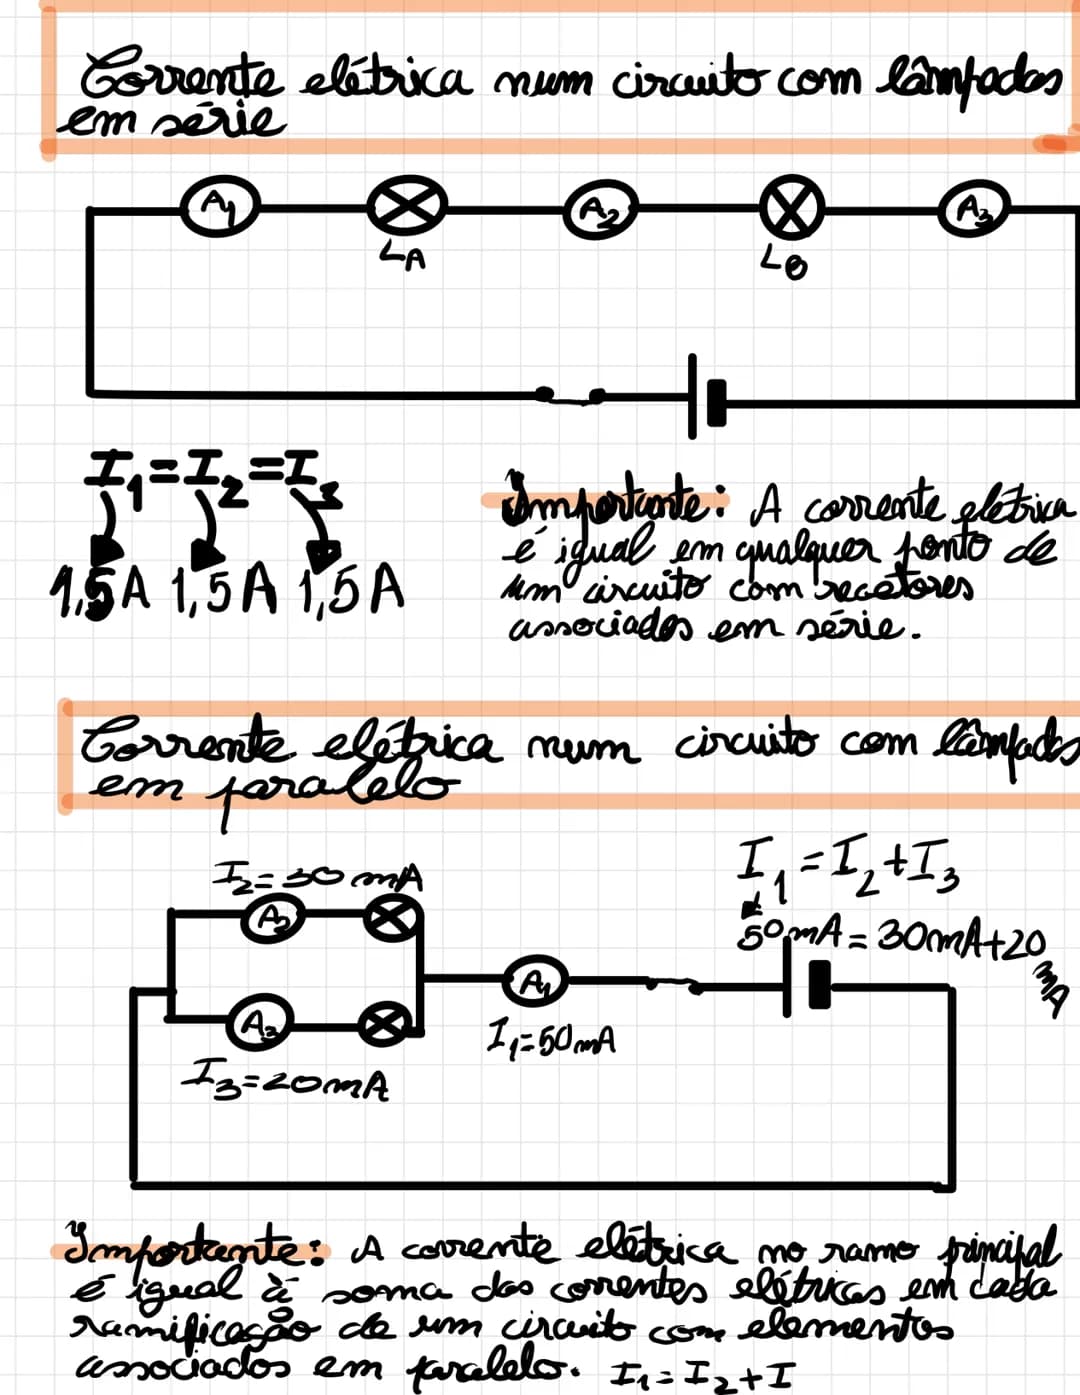 Corrente elétrica num circuito com lâmpadas
em série
A1
A2
A3
LA
LB
I1=I2=I3
1,5A 1,5A 1,5A
Importante: A corrente elétrica
é igual em qualquer ponto de
um circuito com recetores
associados em série.
Corrente elétrica num circuito com lâmpadas
em paralelo
I2=30mA
A2
A3
I3=20mA
A1
I1=50mA
I1=I2+I3
50mA=30mA+20
mA
Importante: A corrente elétrica no ramo principal
é igual à soma das correntes elétricas em cada
ramificação de um circuito com elementos
associados em paralelo. I1=I2+I